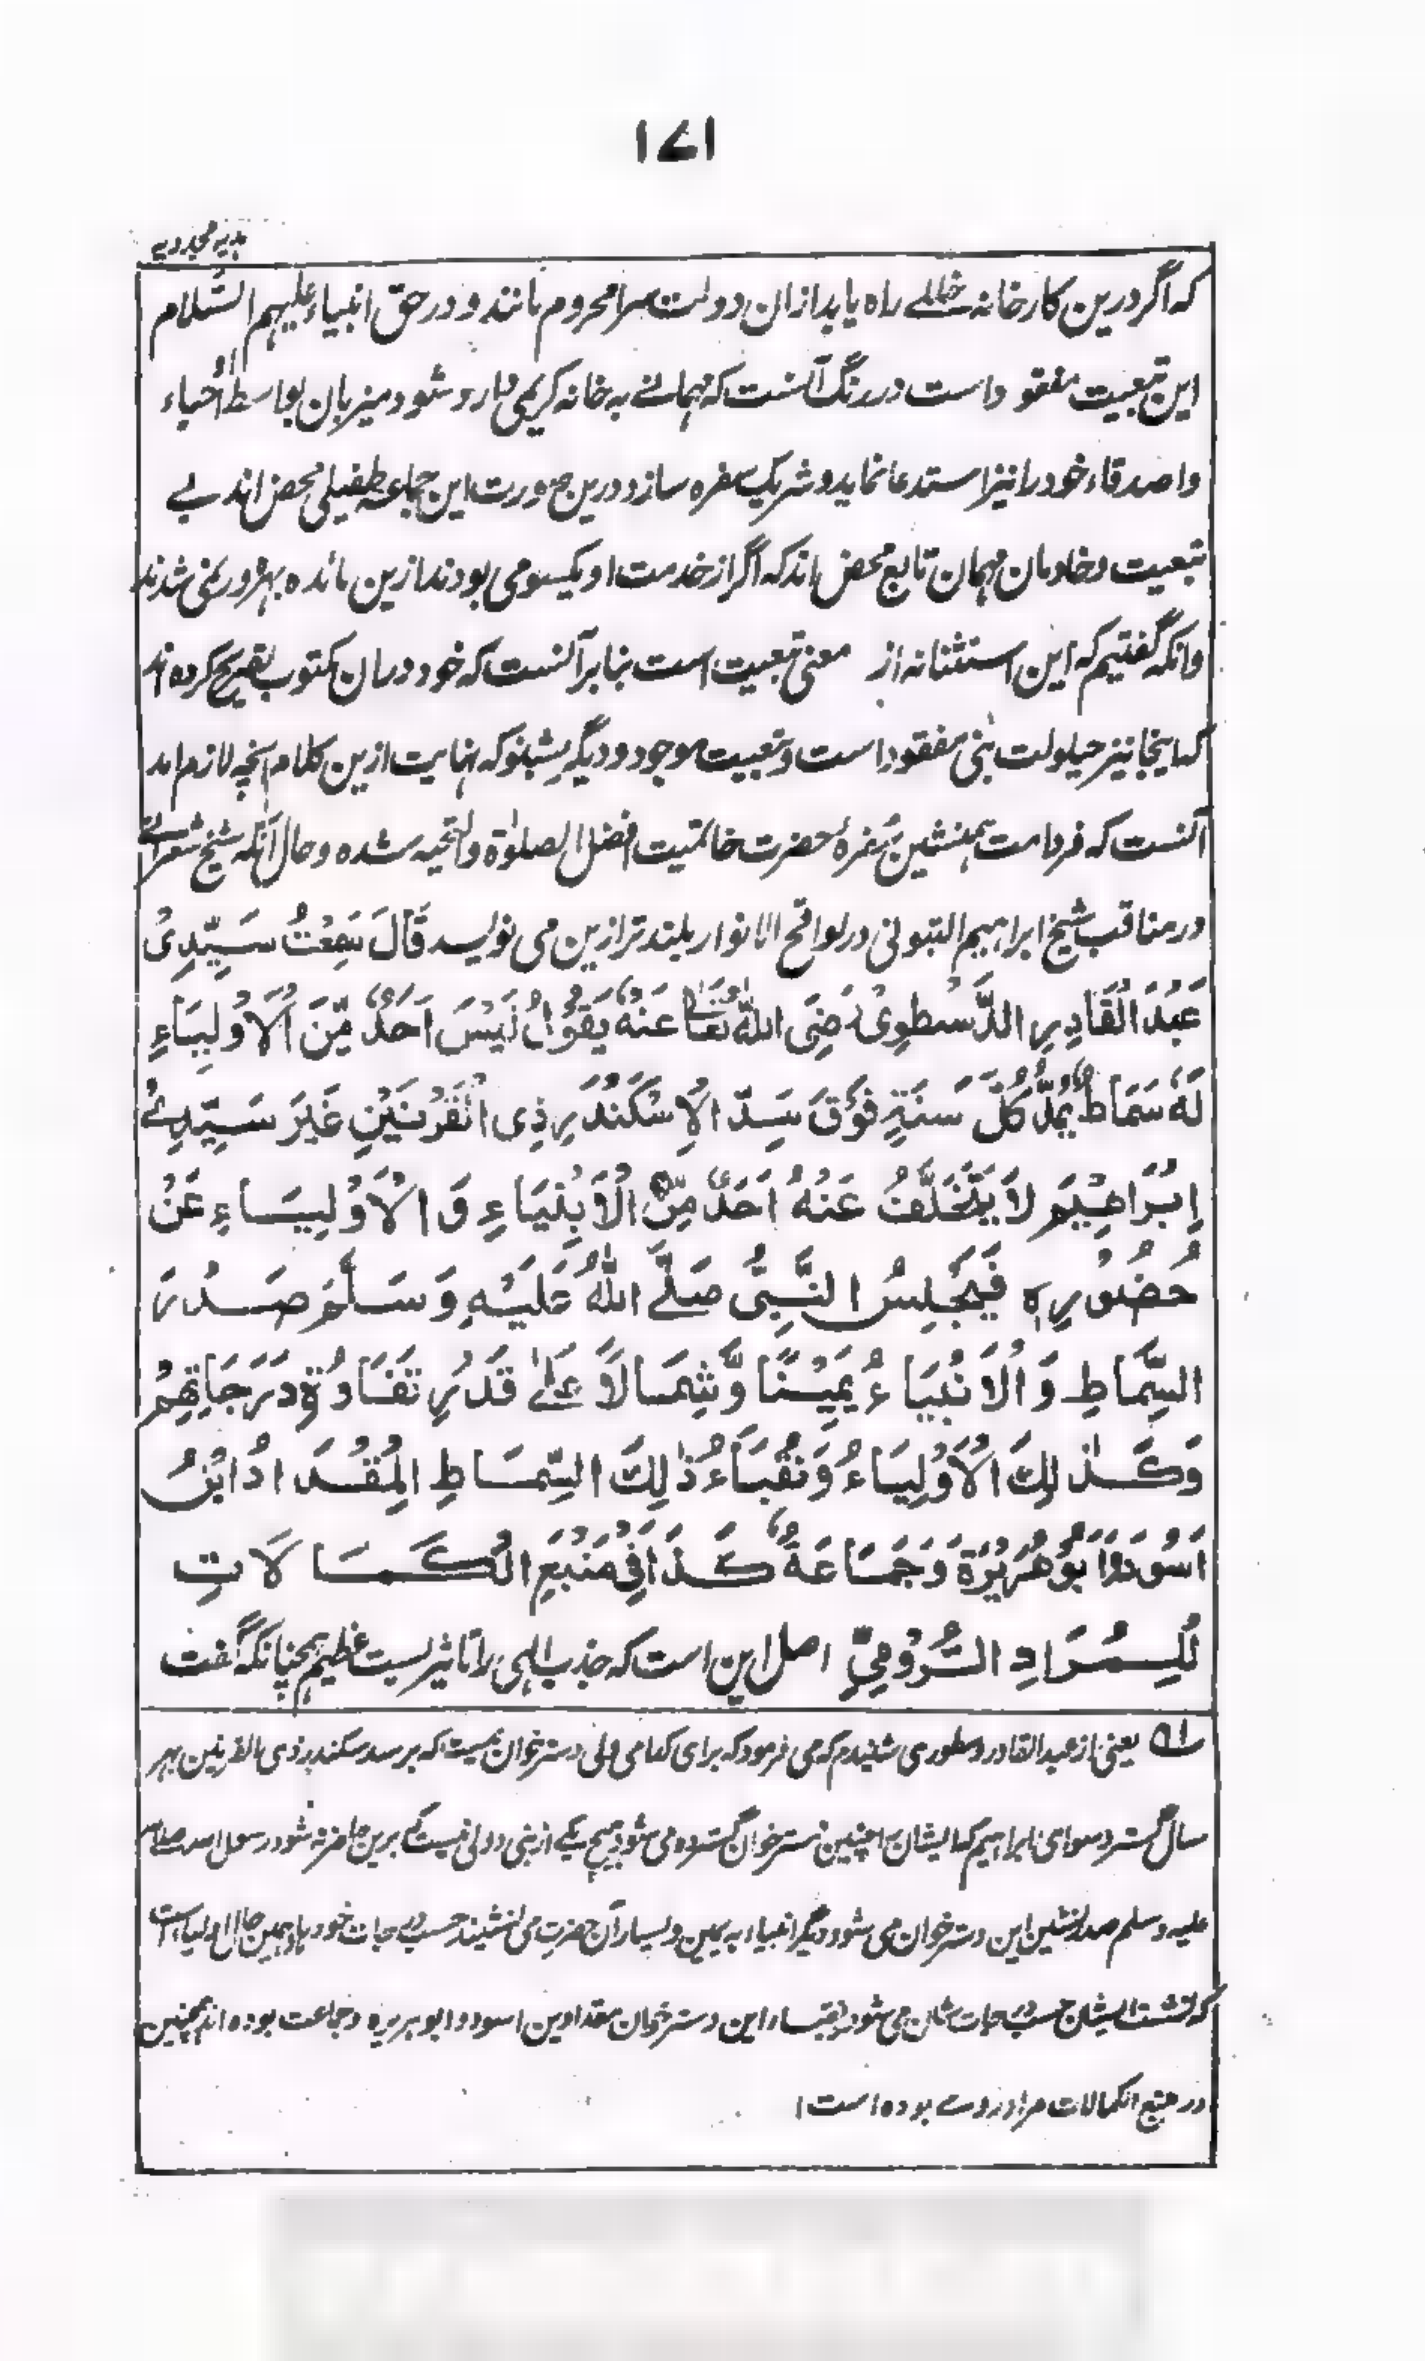 ۱۷۱
ہدیہ مجددیہ
کہ اگر درین کارخانہ خللے راہ یابد ازان دولت سرا محروم مانند و در حق انبیاء علیہم السّلام
این تبعیت مفقود است در رنگ آنست کہ مہمانے بہ خانہ کریمی وارد شود میزبان بواسطہ احیاء
و اصدقاء خود را نیز استدعا نماید و شریک سفرہ سازد درین صورت این جماعہ طفیلی محض اند بے
تبعیت و خادمان مہمان تابع محض اند کہ اگر از خدمت او یکسو می بودند ازین مائدہ بہرہ ور نمی شدند
وانکہ گفتیم کہ این استثنا نہ از معنی تبعیت است بنا بر آنست کہ خود در ان مکتوب تصریح کردہ اند
کہ اینجا نیز حیلولت نبی مفقود است و تبعیت موجود و دیگر بشنو کہ نہایت ازین کلام آنچہ لازم امد
آنست کہ فرد امت ہمنشین سُفرۂ حضرت خاتمیت افضل الصلوٰۃ والتحیہ شدہ و حال آنکہ شیخ شعرانے
در مناقب شیخ ابراہیم المتبولی در لواقح الانوار بلند تر ازین می نویسد قَالَ سَمِعْتُ سَيِّدِىْ
عَبْدَ الْقَادِرِ الدَّسْطُوِىْ رَضِىَ اللّٰهُ تَعَالٰى عَنْهُ يَقُوْلُ لَيْسَ اَحَدٌ مِّنَ الْاَوْلِيَاءِ
لَهٗ سَمَاطٌ يُمَدُّ كُلَّ سَنَةٍ فَوْقَ سَدِّ الْاِسْكَنْدَرِ ذِى الْقَرْنَيْنِ غَيْرَ سَيِّدِىْ
اِبْرَاهِيْمَ لَا يَتَخَلَّفُ عَنْهُ اَحَدٌ مِّنَ الْاَنْبِيَاءِ وَ الْاَوْلِيَاءِ عَنْ
حُضُوْرِهٖ فَيَجْلِسُ النَّبِىُّ صَلَّى اللّٰهُ عَلَيْهِ وَسَلَّمَ صَدْرَ
السِّمَاطِ وَالْاَنْبِيَاءُ يَمِيْنًا وَّشِمَالًا عَلٰى قَدْرِ تَفَاوُةِ دَرَجَاتِهِمْ
وَكَذٰلِكَ الْاَوْلِيَاءُ وَنُقَبَاءُ ذٰلِكَ السِّمَاطِ الْمِقْدَادُ ابْنُ
اَسْوَدَ وَاَبُوْهُرَيْرَةَ وَجَمَاعَةٌ كَذَا فِىْ مَنْبَعِ الْكَمَالَاتِ
لِمُرَادِ الرُّوْمِىِّ اصل این است کہ جذب الہی را تاثیر لیست عظیم ہمچنانکہ گفت
یعنی از عبدالقادر وسطوری شنیدم کہ می فرمود کہ برای کدامی ولی دسترخوان نیست کہ بر سد سکندر ذی القرنین بہر
سال گسترد سوای ابراہیم کہ ایشان را چنین دسترخوان گستردہ می شود ہیچ یکے از نبی و ولی نیست کہ برین حاضر نہ شود رسول اللہ صلے اللہ
علیہ وسلم صدر نشین این دسترخوان می شود و دیگر انبیاء بہ یمین و یسار آن حضرت می نشیند حسب درجات خود ہا و ہمین حال اولیاء است
کہ نشست ایشان حسب درجات شان می شود نقباء این دسترخوان مقداد بن اسود و ابوہریرہ و جماعت بودہ اند ہمچنین
در منبع الکمالات مراد رومے بودہ است ۱